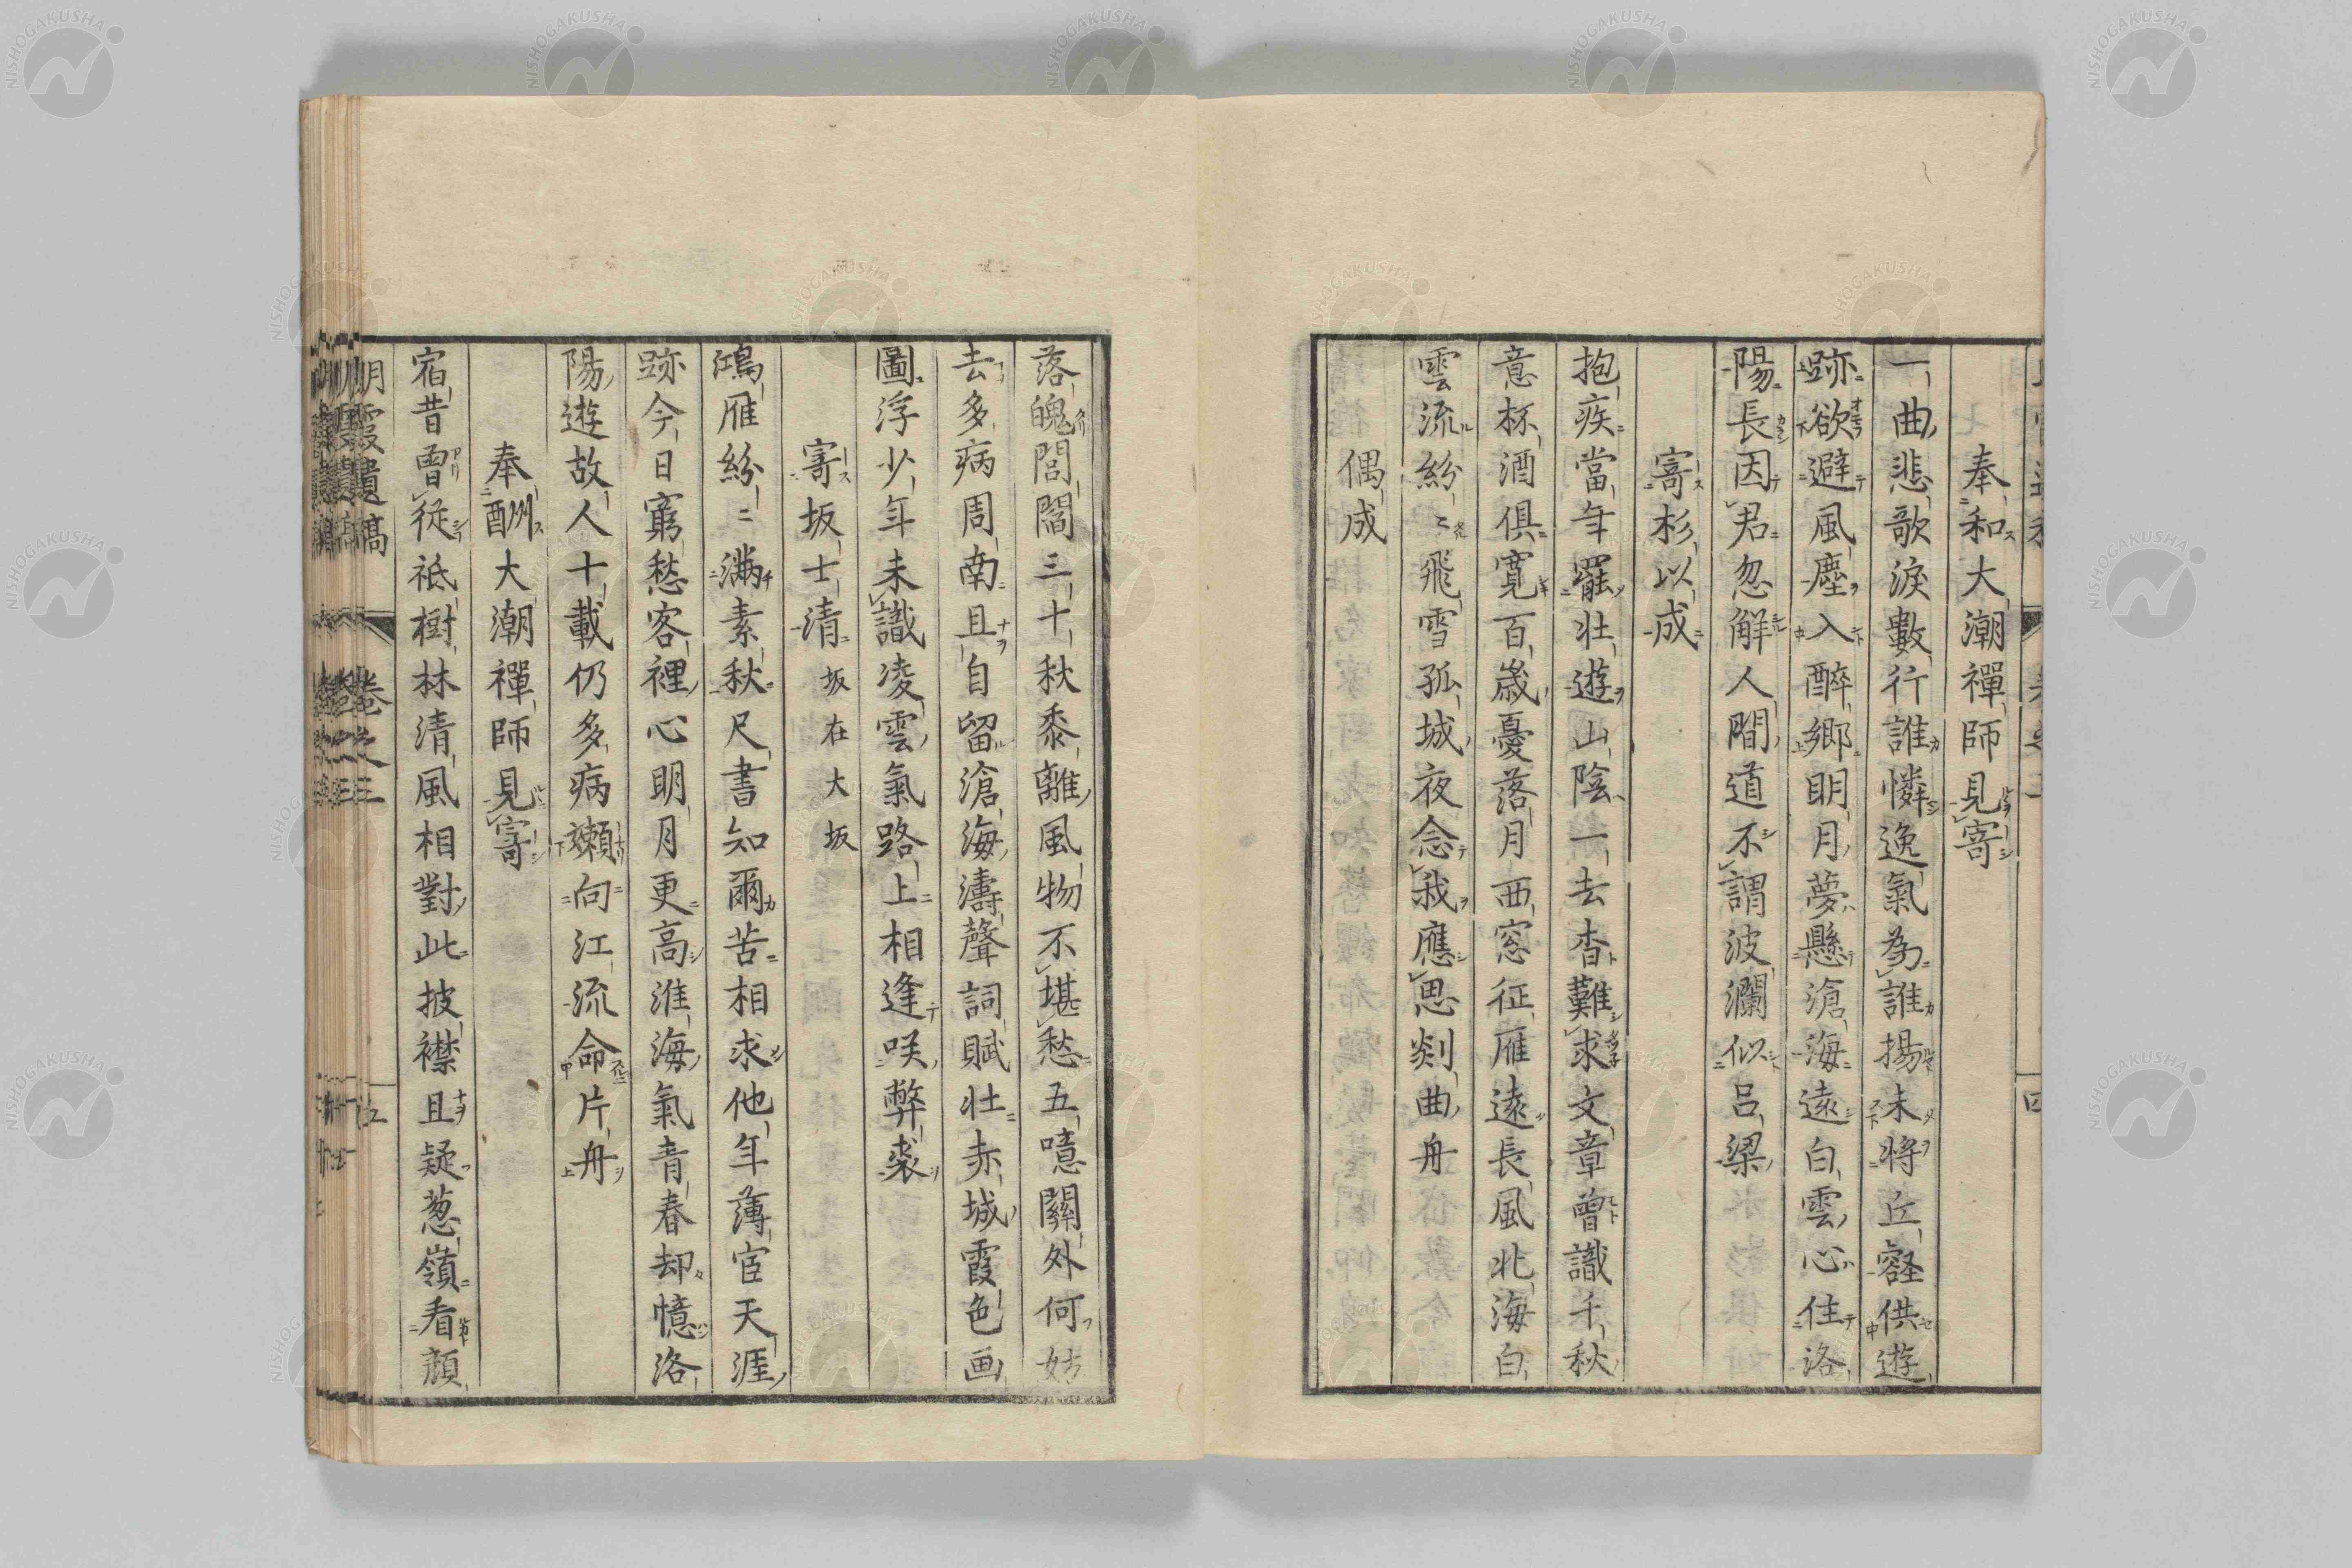 奉和大潮禪師見寄
一曲悲歌淚數行誰憐逸氣為誰揚未將丘壑供遊
跡欲避風塵入醉鄉明月夢懸滄海遠白雲心住洛
陽長因君忽解人間道不謂波瀾似呂梁
寄杉以成
抱疾當年罷壯遊山陰一去杳難求文章曾識千秋
意杯酒俱寬百歲憂落月西窓征雁遠長風北海白
雲流紛〻飛雪孤城夜念我應思剡曲舟
偶成
落魄閻閭三十秋黍離風物不堪愁五噫關外何妨
去多病周南且自留滄海濤聲詞賦壯赤城霞色画
圖浮少年未識凌雲氣路上相逢咲弊裘
寄坂士清 坂在大坂
鴻雁紛〻滿素秋尺書知爾苦相求他年薄宦天涯
跡今日窮愁客裡心明月更高淮海氣青春却憶洛
陽遊故人十載仍多病嬾向江流命片舟
奉酬大潮禪師見寄
宿昔曾從祇樹林清風相對此披襟且疑葱嶺看顔
明霞遺稿 卷之三